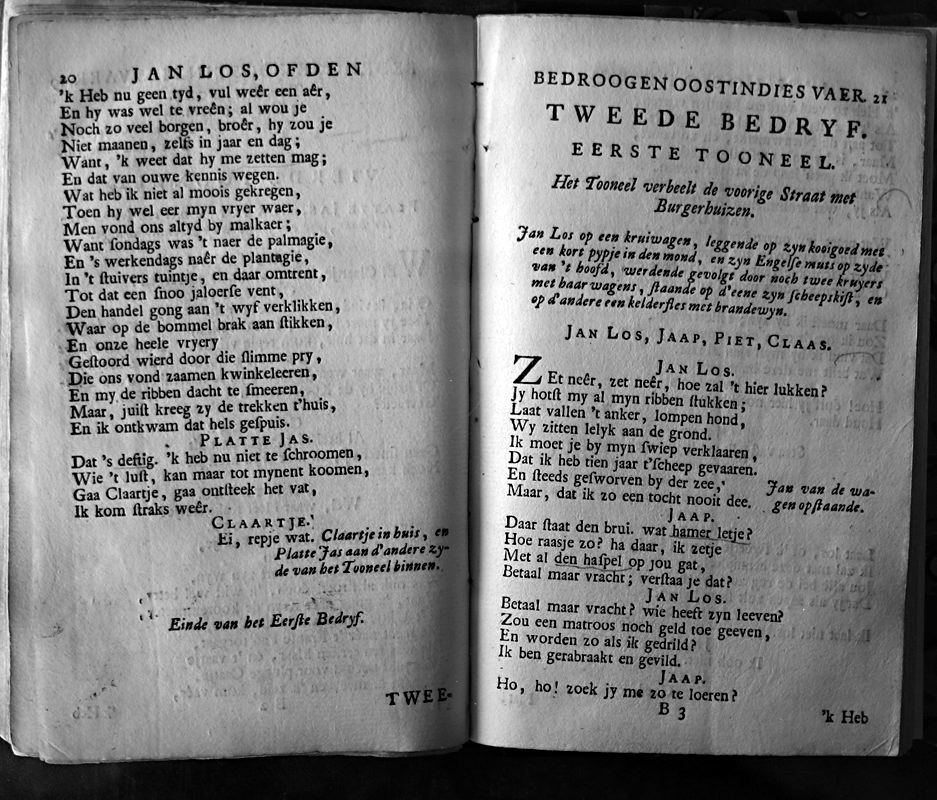 20 JAN LOS, OF DEN
'k Heb nu geen tyd, vul weêr een aêr,
En hy was wel te vreên; al wou je
Noch zo veel borgen, broêr, hy zou je
Niet maanen, zelfs in jaar en dag;
Want, 'k weet dat hy me zetten mag;
En dat van ouwe kennis wegen.
Wat heb ik niet al moois gekregen,
Toen hy wel eer myn vryer waer,
Men vond ons altyd by malkaer;
Want ſondags was 't naer de palmagie,
En 's werkendags naêr de plantagie,
In 't ſtuivers tuintje, en daar omtrent,
Tot dat een ſnoo jaloerſe vent,
Den handel gong aan 't wyf verklikken,
Waar op de bommel brak aan ſtikken,
En onze heele vryery
Geſtoord wierd door die ſlimme pry,
Die ons vond zaamen kwinkeleeren,
En my de ribben dacht te ſmeeren,
Maar, juiſt kreeg zy de trekken t'huis,
En ik ontkwam dat hels geſpuis.
PLATTE JAS.
Dat 's deftig. 'k heb nu niet te ſchroomen,
Wie 't luſt, kan maar tot mynent koomen,
Gaa Claartje, gaa ontſteek het vat,
Ik kom ſtraks weêr.
CLAARTJE.
Ei, repje wat. Claartje in huis, en
Platte Jas aan d'andere zy-
de van het Tooneel binnen.
Einde van het Eerſte Bedryf.
TWEE-
BEDROOGEN OOSTINDIES VAER. 21
TWEEDE BEDRYF.
EERSTE TOONEEL.
Het Tooneel verbeelt de voorige Straat met
Burgerhuizen.
Jan Los op een kruiwagen, leggende op zyn kooigoed met
een kort pypje in den mond, en zyn Engelſe muts op zyde
van 't hoofd, werdende gevolgt door noch twee kruyers
met haar wagens, ſtaande op d'eene zyn ſcheepskiſt, en
op d'andere een kelderfles met brandewyn.
JAN LOS, JAAP, PIET, CLAAS.
JAN LOS.
ZEt neêr, zet neêr, hoe zal 't hier lukken?
Jy hotſt my al myn ribben ſtukken;
Laat vallen 't anker, lompen hond,
Wy zitten lelyk aan de grond.
Ik moet je by myn ſwiep verklaaren,
Dat ik heb tien jaar t'ſcheep gevaaren.
En ſteeds geſworven by der zee,
Maar, dat ik zo een tocht nooit dee. Jan van de wa-
gen opſtaande.
JAAP.
Daar ſtaat den brui. wat hamer letje?
Hoe raasje zo? ha daar, ik zetje
Met al den haſpel op jou gat,
Betaal maar vracht; verſtaa je dat?
JAN LOS.
Betaal maar vracht? wie heeft zyn leeven?
Zou een matroos noch geld toe geeven,
En worden zo als ik gedrild?
Ik ben gerabraakt en gevild.
JAAP.
Ho, ho! zoek jy me zo te loeren?
B 3
'k Heb